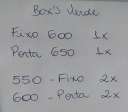 Box's Verde
Fixo 600 1x
Porta 650 1x
550 - Fixo 2x
600 - Porta 2x